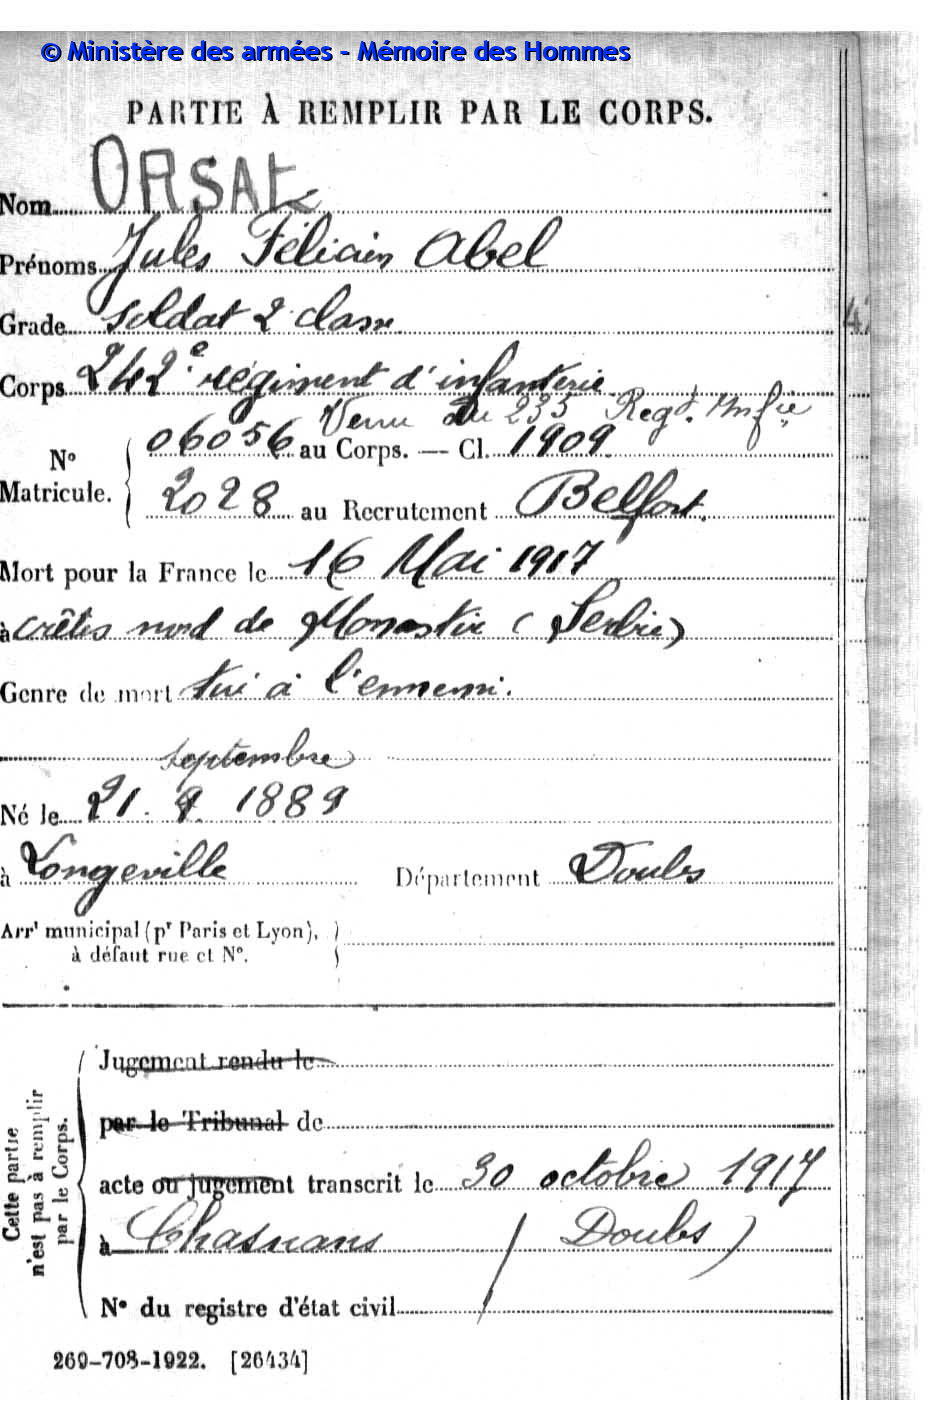 © Ministère des armées - Mémoire des Hommes
PARTIE À REMPLIR PAR LE CORPS.
Nom ORSAT
Prénoms Jules Félicien Abel
Grade Soldat 2 classe
Corps 242e régiment d'infanterie
Venu du 235 Regt. Infie
N° Matricule. 06056 au Corps. — Cl. 1909
2028 au Recrutement Belfort.
Mort pour la France le 16 Mai 1917
à crêtes nord de Monastir (Serbie)
Genre de mort tué à l'ennemi.
septembre
Né le 21. 9. 1889
à Longeville Département Doubs
Arrt municipal (pr Paris et Lyon),
à défaut rue et N°.
Cette partie
n'est pas à remplir
par le Corps.
Jugement rendu le
par le Tribunal de
acte ou jugement transcrit le 30 octobre 1917
à Chasnans (Doubs)
N° du registre d'état civil
269-708-1922. [26434]